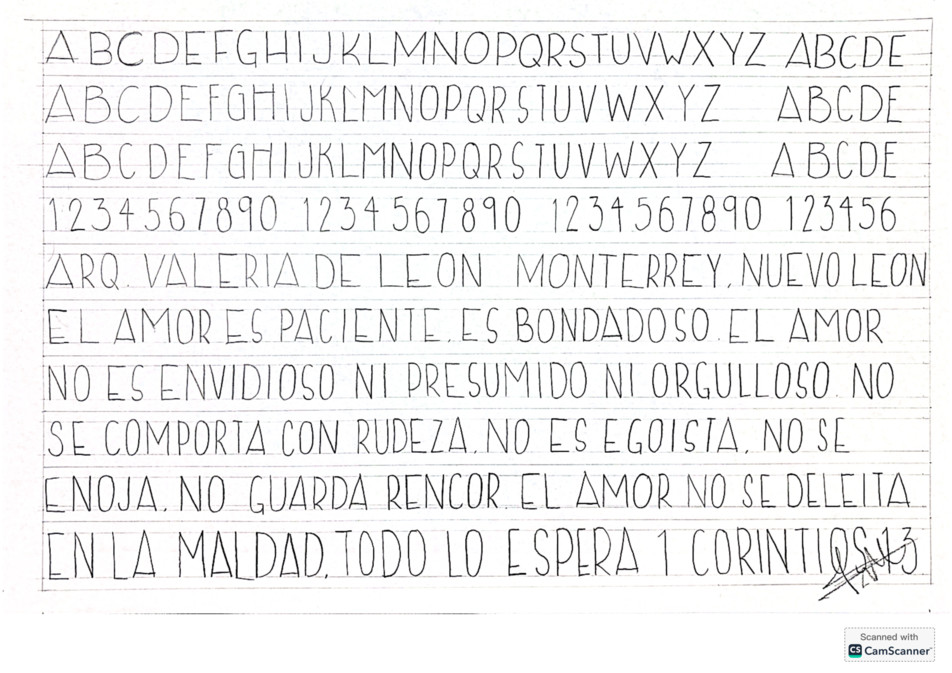 A B C D E F G H I J K L M N O P Q R S T U V W X Y Z A B C D E
A B C D E F G H I J K L M N O P Q R S T U V W X Y Z A B C D E
A B C D E F G H I J K L M N O P Q R S T U V W X Y Z A B C D E
1234567890 1234567890 1234567890 123456
ARQ. VALERIA DE LEON MONTERREY, NUEVO LEON
EL AMOR ES PACIENTE, ES BONDADOSO. EL AMOR
NO ES ENVIDIOSO NI PRESUMIDO NI ORGULLOSO. NO
SE COMPORTA CON RUDEZA, NO ES EGOISTA, NO SE
ENOJA, NO GUARDA RENCOR. EL AMOR NO SE DELEITA
EN LA MALDAD, TODO LO ESPERA 1 CORINTIOS 13
Scanned with
CS CamScanner